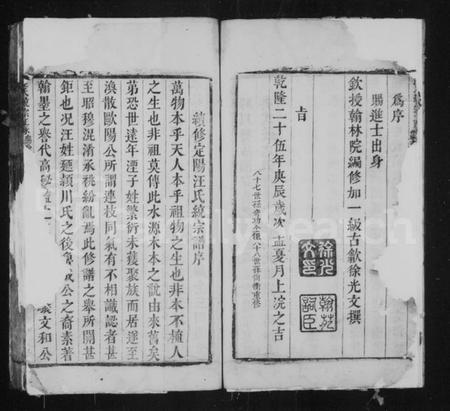 為序
賜進士出身
欽授翰林院編修加一級古歙徐光文撰
旹
乾隆二十伍年庚辰歲次孟夏月上浣之吉
徐光文印
翰苑詞臣
續修定陽汪氏統宗譜序
萬物本乎天人本乎祖物之生也非本不植人
之生也非祖莫傳此水源木本之說由來舊矣
第恐世遠年湮子姓繁衍未獲聚族而居遂至
渙散歐陽公所謂連枝同氣有不相識認者甚
至昭穆混淆承祧紛亂焉此修譜之舉所關甚
鉅也况汪姓廼潁川氏之後 公之裔素著
翰墨之譽代高 文和公